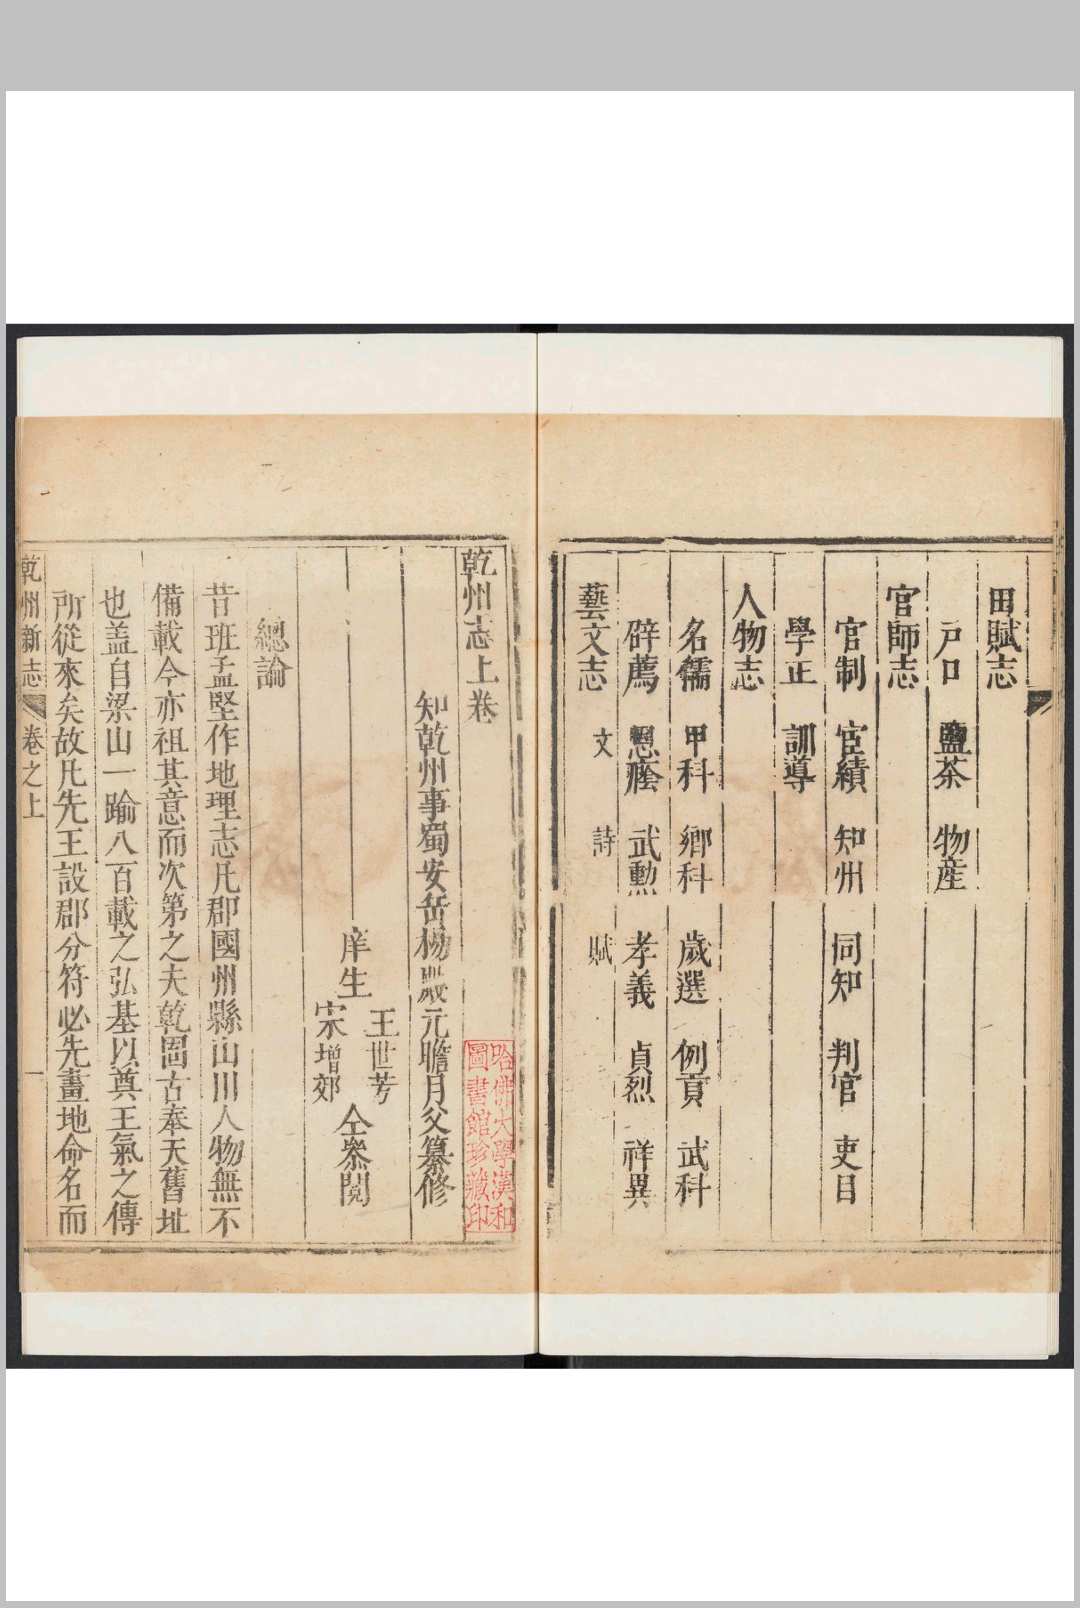 田賦志
戸口 鹽茶 物産
官師志
官制 宦績 知州 同知 判官 吏目
學正 訓導
人物志
名儒 甲科 鄉科 歲選 例貢 武科
辟薦 恩廕 武勲 孝義 貞烈 祥異
藝文志 文 詩 賦
乾州志上卷
知乾州事蜀安岳楊殿元瞻月父纂修
庠生 王世芳
宋增郊
仝叅閱
總論
昔班孟堅作地理志凡郡國州縣山川人物無不
備載今亦祖其意而次第之夫乾固古奉天舊址
也盖自梁山一踰八百載之弘基以奠王氣之傳
所從來矣故凡先王設郡分符必先畫地命名而
乾州新志 卷之上 一
哈佛大學漢和
圖書館珍藏印